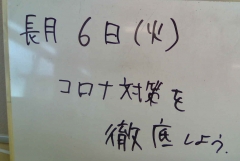 長月 6日(火)
コロナ対策を
徹底しよう.